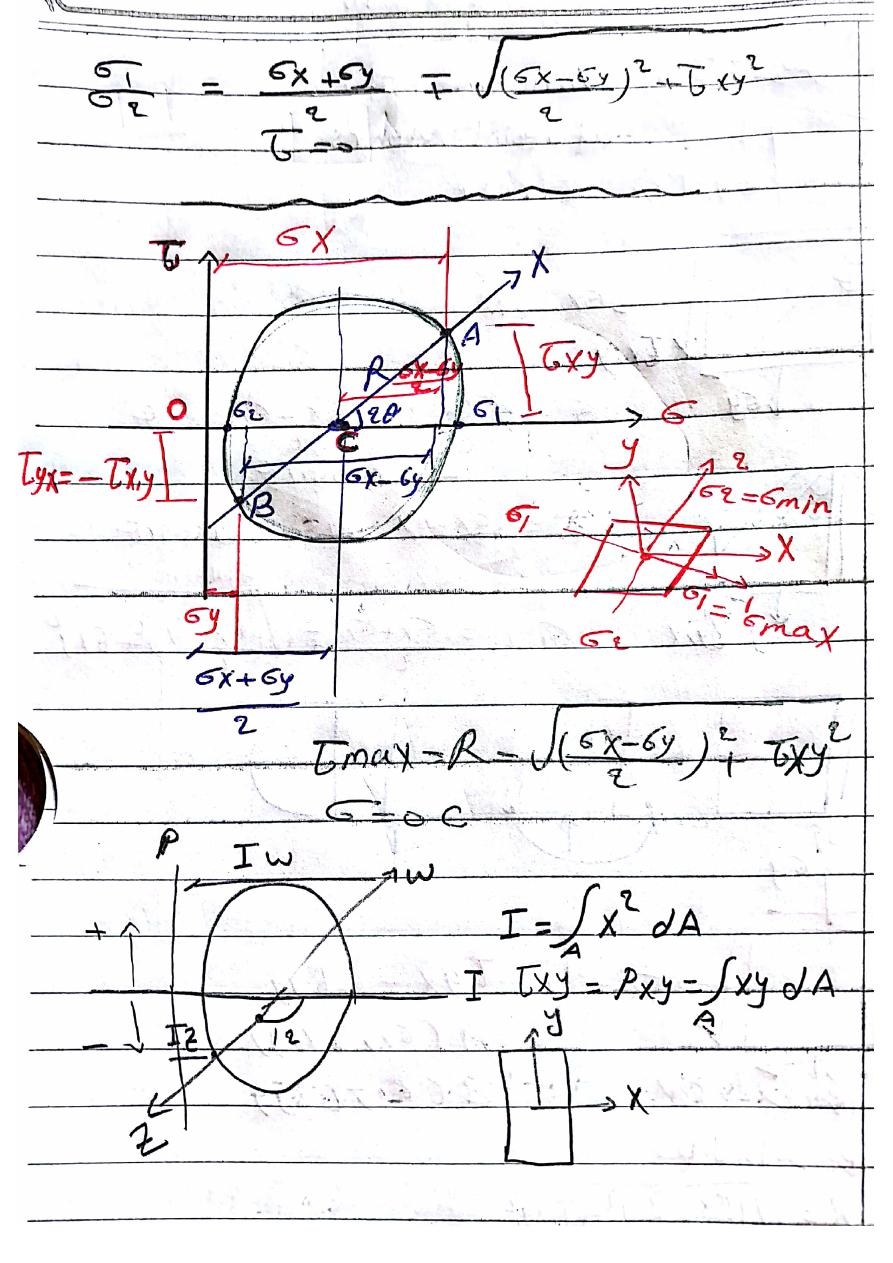 σ1/σ2 = (σx+σy)/2 ∓ √((σx-σy)/2)² + τxy²
τ=0
τ
σx
X
A
R
(σx-σy)/2
τxy
O
σ2
2θ
σ1
σ
C
τyx=-τx,y
σx-σy
B
y
2
σ2=σmin
σ1
X
σ1=σmax
σ2
σy
(σx+σy)/2
τmax=R=√((σx-σy)/2)² + τxy²
σ=0C
P
Iw
w
+
I=∫A x² dA
I
τxy = Pxy=∫A xy dA
-
Iz
y
X
Z